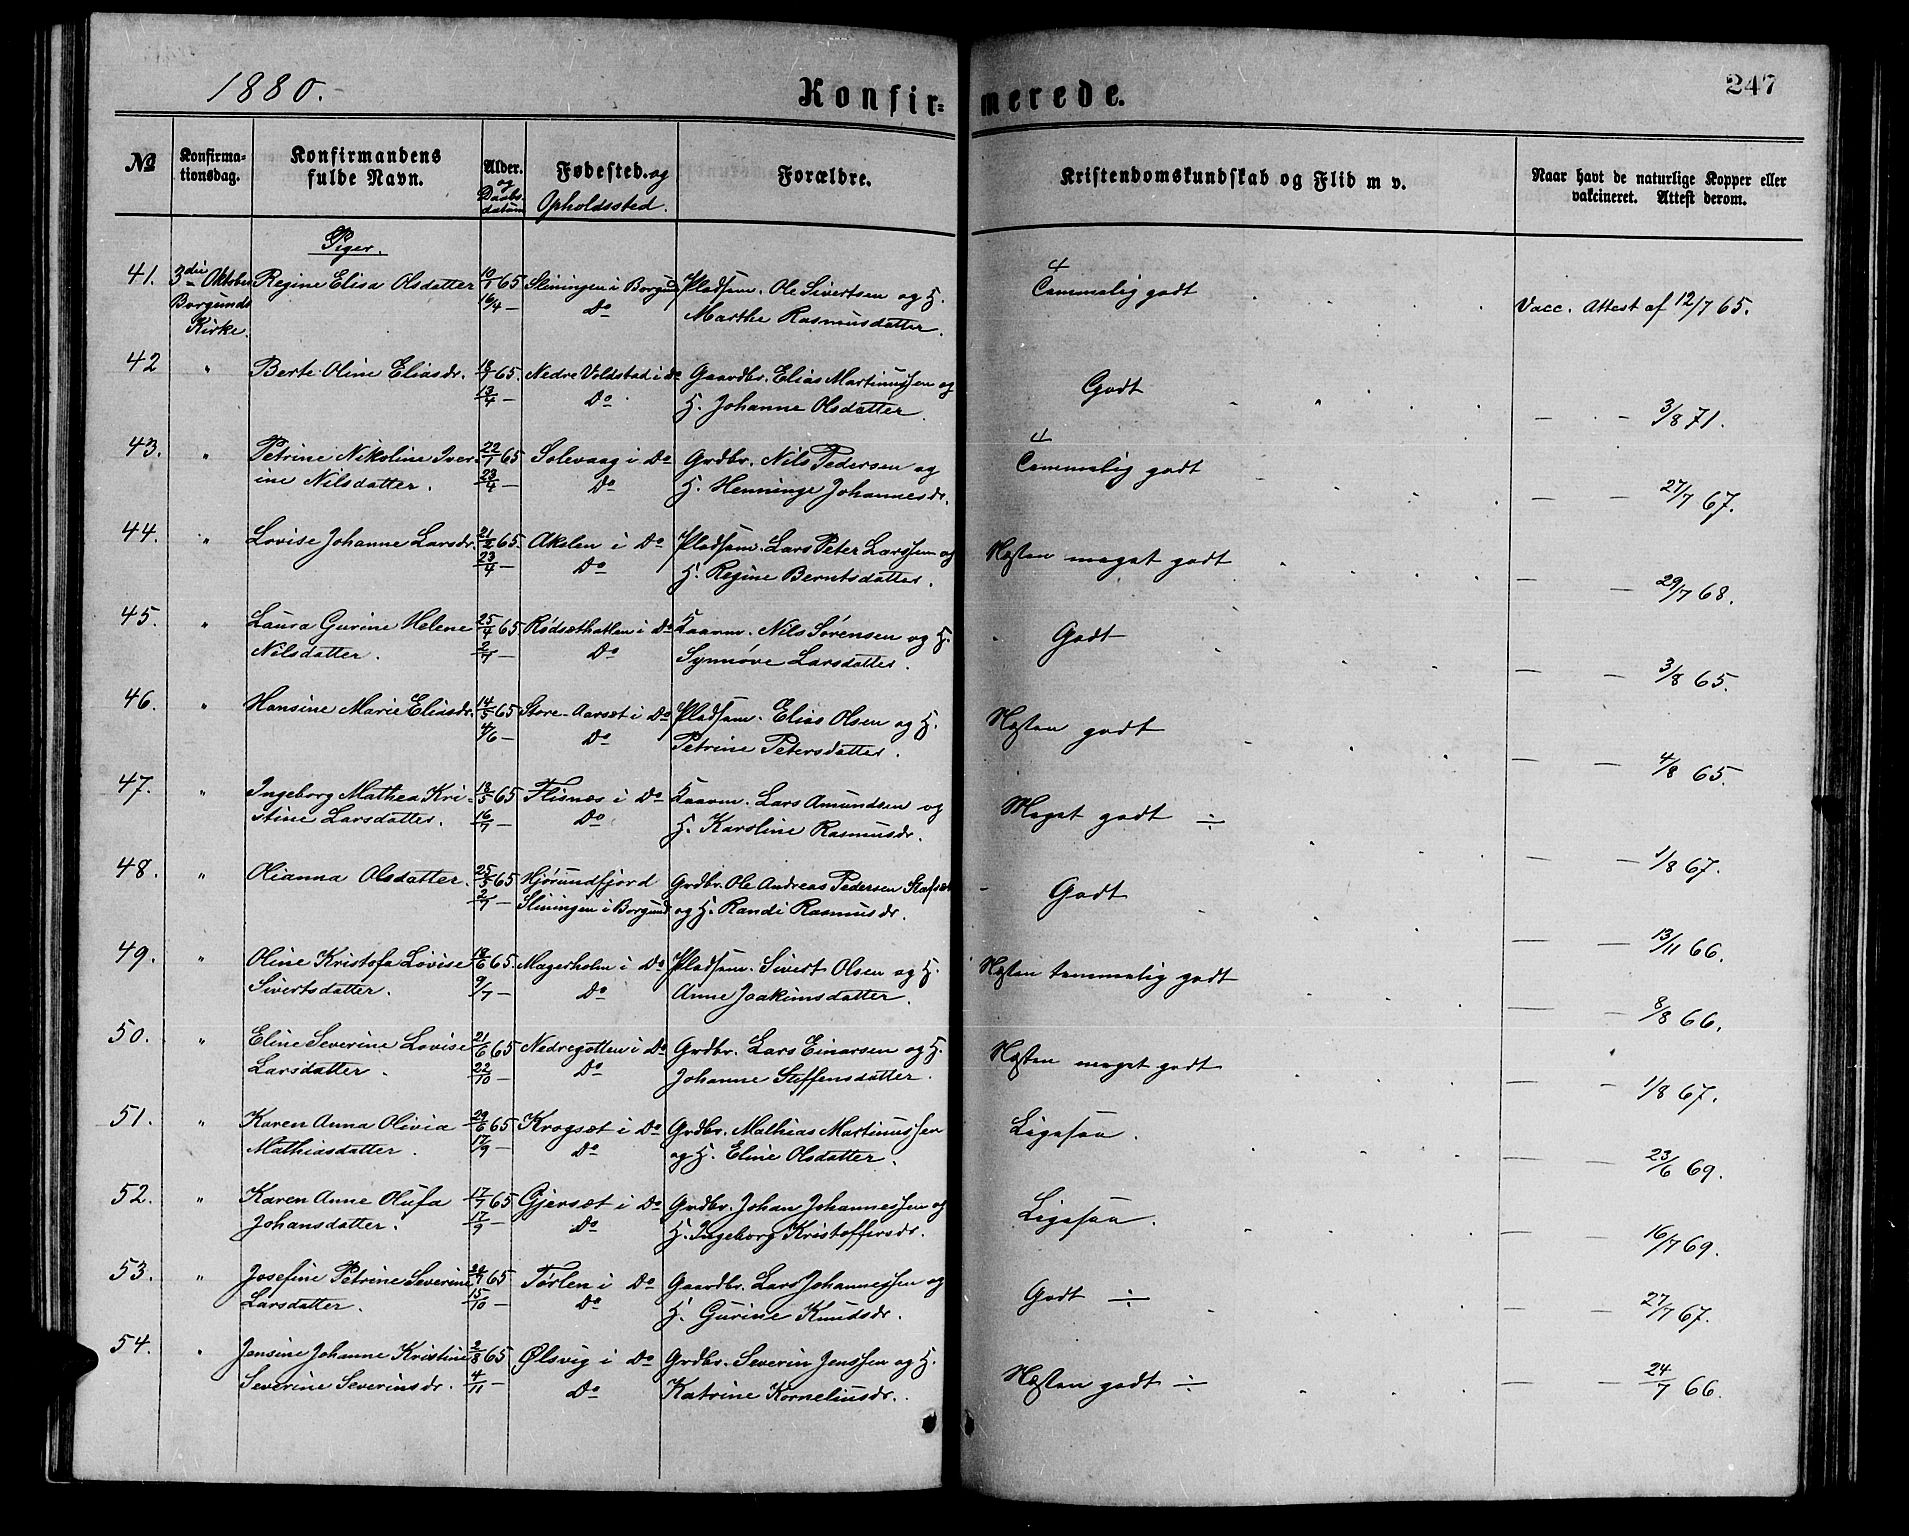 1880.
Konfir-
merede.
247
No
Konfirma-
tionsdag.
Konfirmandens
fulde Navn.
Alder.
og
Daabs-
datum
Fødested. og
Opholdssted.
Forældre.
Kristendomskundskab og Flid m v.
Naar havt de naturlige Kopper eller
vakcineret. Attest derom.
Piger.
41. 3die Oktober Regine Elisa Olsdatter 10/1 65 Sliningen i Borgund Pladsm. Ole Sivertsen og H. Tammelig godt Vacc. Attest af 12/7 65.
Borgunds 16/4 — Do Marthe Rasmusdatter.
Kirke.
42 " Berte Oline Eliasdr. 65. Nedre Voldstad i Do Gaardbr. Elias Martinussen og Godt — — 3/8 71.
/4 — Do H. Johanne Olsdatter.
43. " Petrine Nikoline Iver- 22/1 65 Solevaag i Do Grdbr. Nils Pedersen og Tammelig godt — — 27/7 67.
ine Nilsdatter. 23/4 — Do H. Henninge Johannesdr.
44. " Lovise Johanne Larsdr. 21/2 65. Akslen i Do Pladsm. Lars Peter Larssen og Næsten meget godt — — 29/7 68.
23/4 — Do H. Regine Berntsdatter.
45. " Laura Gurine Helene 25/4 65 Rødsæthatlen i Do Kaarm. Nils Sørensen og H. Godt — — 3/8 65.
Nilsdatter. 2/7 — Do Synnøve Larsdatter.
46. " Hansine Marie Eliasdr. 14/5 65 Store-Aarsæt i Do Pladsm. Elias Olsen og H. Næsten godt — — 4/8 65.
4/6 — Do Petrine Petersdatter.
47. " Ingeborg Mathea Kri- 18/5 65 Flisnes i Do Kaarm. Lars Amundsen og Meget godt ÷ — — 1/8 67.
stine Larsdatter. 16/7 — Do H. Karoline Rasmusdr.
48. " Olianna Olsdatter. 25/5 65 Hjørundfjord Grdbr. Ole Andreas Pedersen Godt — — 13/11 66.
2/7 — Sliningen i Borgund og H. Randi Rasmusdr.
49. " Oline Kristofa Lovise 18/6 65. Magerholm i Do Pladsm. Sivert Olsen og H. Næsten temmelig godt — — 8/8 66.
Sivertsdatter. 9/7 — Do Anne Joakimsdatter.
50. " Eline Severine Lovise 21/6 65 Nedregotten i Do Grdbr. Lars Einarsen og H. Næsten meget godt — — 1/8 67.
Larsdatter. 22/10 — Do Johanne Steffensdatter.
51. " Karen Anna Olivia 29/6 65 Krogsæt i Do Grdbr. Mathias Martinussen Ligesaa. — — 23/6 69.
Mathiasdatter. 17/9 — Do og H. Eline Olsdatter.
52. " Karen Anne Olufa 17/7 65 Gjersæt i Do Grdbr. Johan Johannessen og Ligesaa. — — 16/7 69.
Johansdatter. 17/9 — Do H. Ingeborg Kristoffersdr.
53. " Josefine Petrine Severine /7 65 Tørlen i Do Gaardbr. Lars Johannessen og Godt ÷ — — 27/7 67.
Larsdatter. 15/10 — Do H. Gurine Knudsdr.
54. " Jensine Johanne Kristine 2/8 65 Ølsvig i Do Grdbr. Severin Jenssen og H. Næsten godt ÷ — — 24/7 66.
Severine Severinsdr. 4/11 — Do Katrine Korneliusdr.